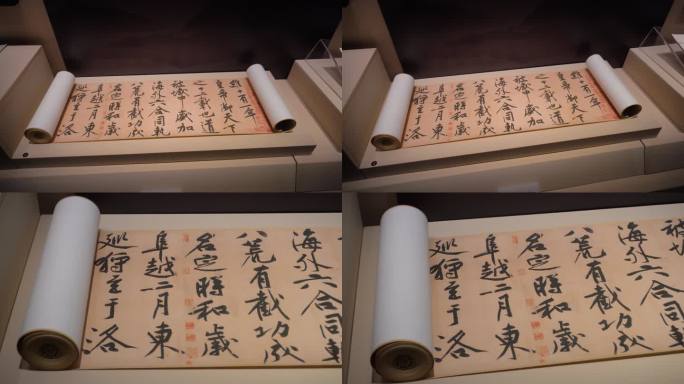 十有一年
皇帝御天下
之十二載也道
被域中威加
海外六合同軌
八荒有截功成
名定時和歲
阜越二月東
巡狩至于洛
十有一年
皇帝御天下
之十二載也道
被域中威加
海外六合同軌
八荒有截功成
名定時和歲
阜越二月東
巡狩至于洛
海外六合同軌
八荒有截功成
名定時和歲
阜越二月東
巡狩至于洛
被域
海外六合同軌
八荒有截功成
名定時和歲
阜越二月東
巡狩至于洛